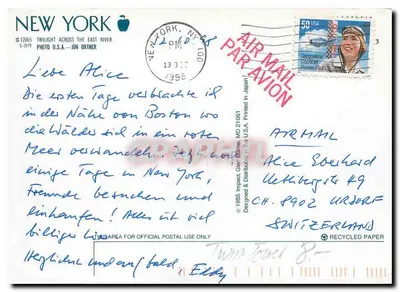 NEW YORK
© 12065 TWILIGHT ACROSS THE EAST RIVER
PHOTO U.S.A. - JON ORTNER
NEW YORK, NY 100
PM
1996
AIR MAIL
PAR AVION
50 USA
Jacqueline
Cochran
Pioneer Pilot
3
Liebe Alice
Die ersten Tage verbrachte ich
in der Nähe von Boston wo
die Wälder sich in ein rotes
Meer verwandeln. Jetzt
einige Tage in New York,
Freunde besuchen und
einkaufen! Alles ist viel
billiger hier.
Herzlich und auf bald. Eddy
© 1995 Impact, Glen Burnie, MD 21061
Designed & Distributed in the U.S.A. Printed in Japan
AIRMAIL
Alice Eberhard
Uetlibergstr. 49
CH-8902 URDORF
SWITZERLAND
AREA FOR OFFICIAL POSTAL USE ONLY
RECYCLED PAPER
Twin Tower 8.-